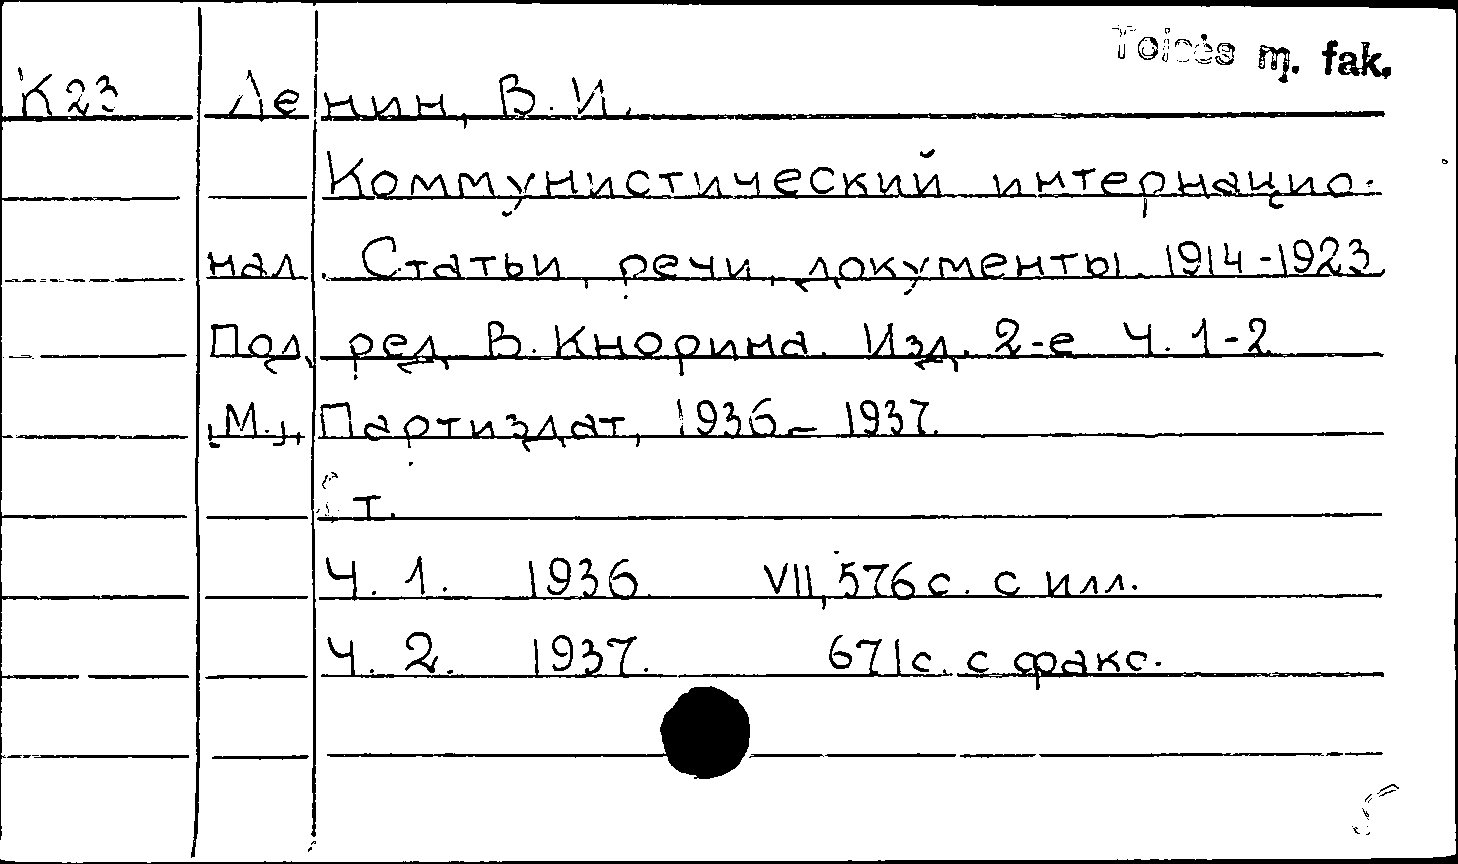 Teisės m. fak.
К23 Ленин, В. И.
Коммунистический интернацио-
нал. Статьи, речи, документы. 1914-1923
Под ред В. Кнорина. Изд. 2-е Ч. 1-2
[М.], Партиздат, 1936-1937.
т.
Ч. 1. 1936 VII, 576 с. с илл.
Ч. 2. 1937. 671 с. с факс.